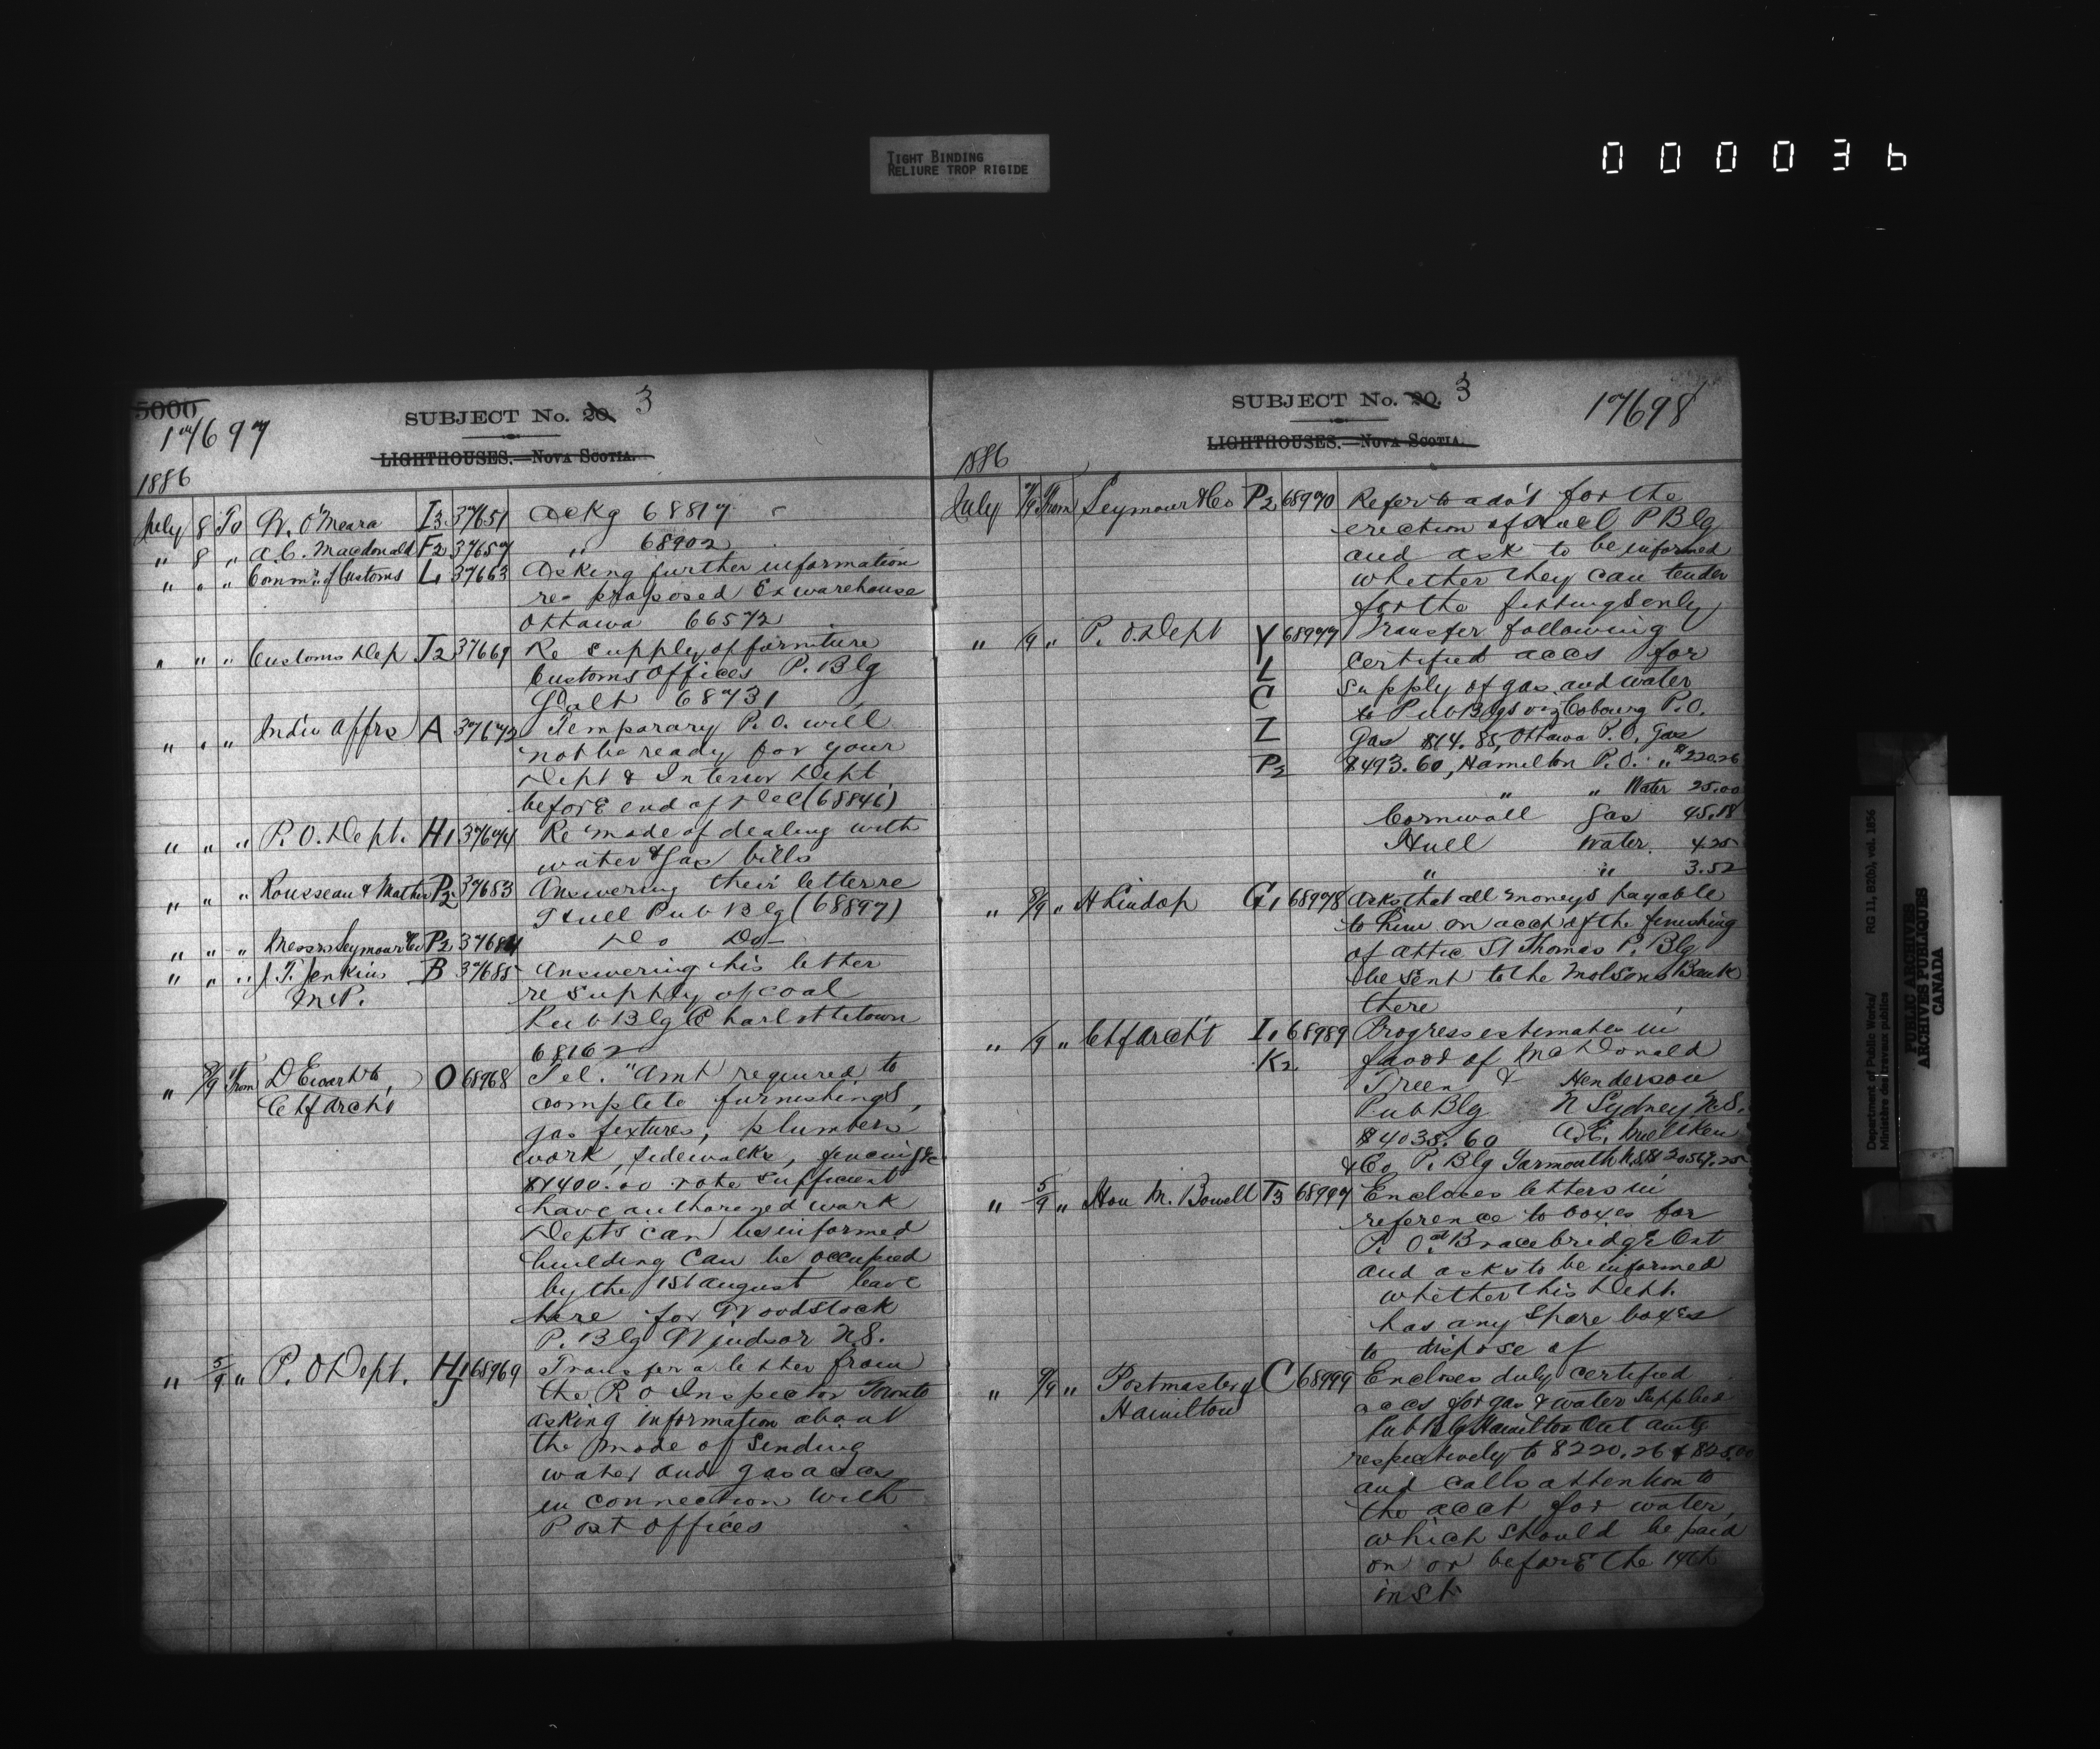 TIGHT BINDING
RELIURE TROP RIGIDE
000036
5000
17697
SUBJECT No. 20. 3
LIGHTHOUSES.—NOVA SCOTIA.
1886
July 8 To W. O'Meara I3 37651 Ackg 68817
" 8 " A.C. Macdonald F2 37657 " 68902
" " " Commr. of Customs L 37663 Asking further information
re- proposed Ex warehouse
Ottawa 66572
" " " Customs Dep J2 37669 Re supply of furniture
Customs Offices P. Blg
Galt 68731
" " " Indn Affrs A 37672 Temporary P.O. will
not be ready for your
Dept & Interior Dept
before end of Dec (68846)
" " " P.O. Dept. H1 37674 Re mode of dealing with
water & Gas bills
" " " Rousseau & Mather P2 37683 Answering their letter re
Hull Pub Blg (68897)
" " " Messrs Seymour & Co P2 37684 Do Do
" " " J.T. Jenkins B 37685 Answering his letter
M.P. re supply of coal
Pub Blg Charlottetown
68162
" 8/9 From D Ewart O 68968 Tel. "Amt required to
Chf Archt complete furnishings,
gas fixtures, plumbers
work, sidewalks, fencing &c
$1400.00 vote sufficient
have authorized work
Depts can be informed
building can be occupied
by the 1st August leave
here for Woodstock
P. Blg Windsor N.S.
" 5/9 " P. O Dept. H1 68969 Transfer a letter from
J the P O Inspector Toronto
asking information about
the mode of sending
water and gas accs
in connection with
Post Offices
SUBJECT No. 20. 3
17698
LIGHTHOUSES.—NOVA SCOTIA.
1886
July 7/9 From Seymour & Co P2 68970 Refer to adv't for the
erection of Hull P Blg
and ask to be informed
whether they can tender
for the fittings only
" /9 " P. O. Dept Y 68977 Transfer following
L certified accs for
C supply of gas and water
to Pub Blgs viz Cobourg P.O.
Z Gas $14.85, Ottawa P.O. Gas
P2 $493.60, Hamilton P.O. " $220.26
" " Water 25.00
Cornwall Gas 45.18
Hull Water 4.25
" " 3.52
" 8/9 " H Lindop G1 68978 Asks that all moneys payable
to him on acct of the finishing
of attic St Thomas P. Blg
be sent to the Molsons Bank
there
" /9 " Chf Archt I1 68989 Progress estimates in
K2 favor of McDonald
Treen & Henderson
Pub Blg N Sydney N.S.
$4038.60 A.E. Milliken
& Co P. Blg Yarmouth N.S.
" 5/9 " Hon M. Bowell T3 68997 Encloses letters in
reference to boxes for
P. O. at Bracebridge Ont
and asks to be informed
whether this Dept.
has any spare boxes
to dispose of
" 9/9 " Postmaster C 68999 Encloses duly certified
Hamilton accs for gas & water supplied
Pub Blg Hamilton Ont amtg
respectively to $220.26 & $25.00
and calls attention to
the acct for water,
which should be paid
on or before the 14th
inst
Department of Public Works/
Ministère des travaux publics
RG 11, B2(b), vol. 1856
PUBLIC ARCHIVES
ARCHIVES PUBLIQUES
CANADA